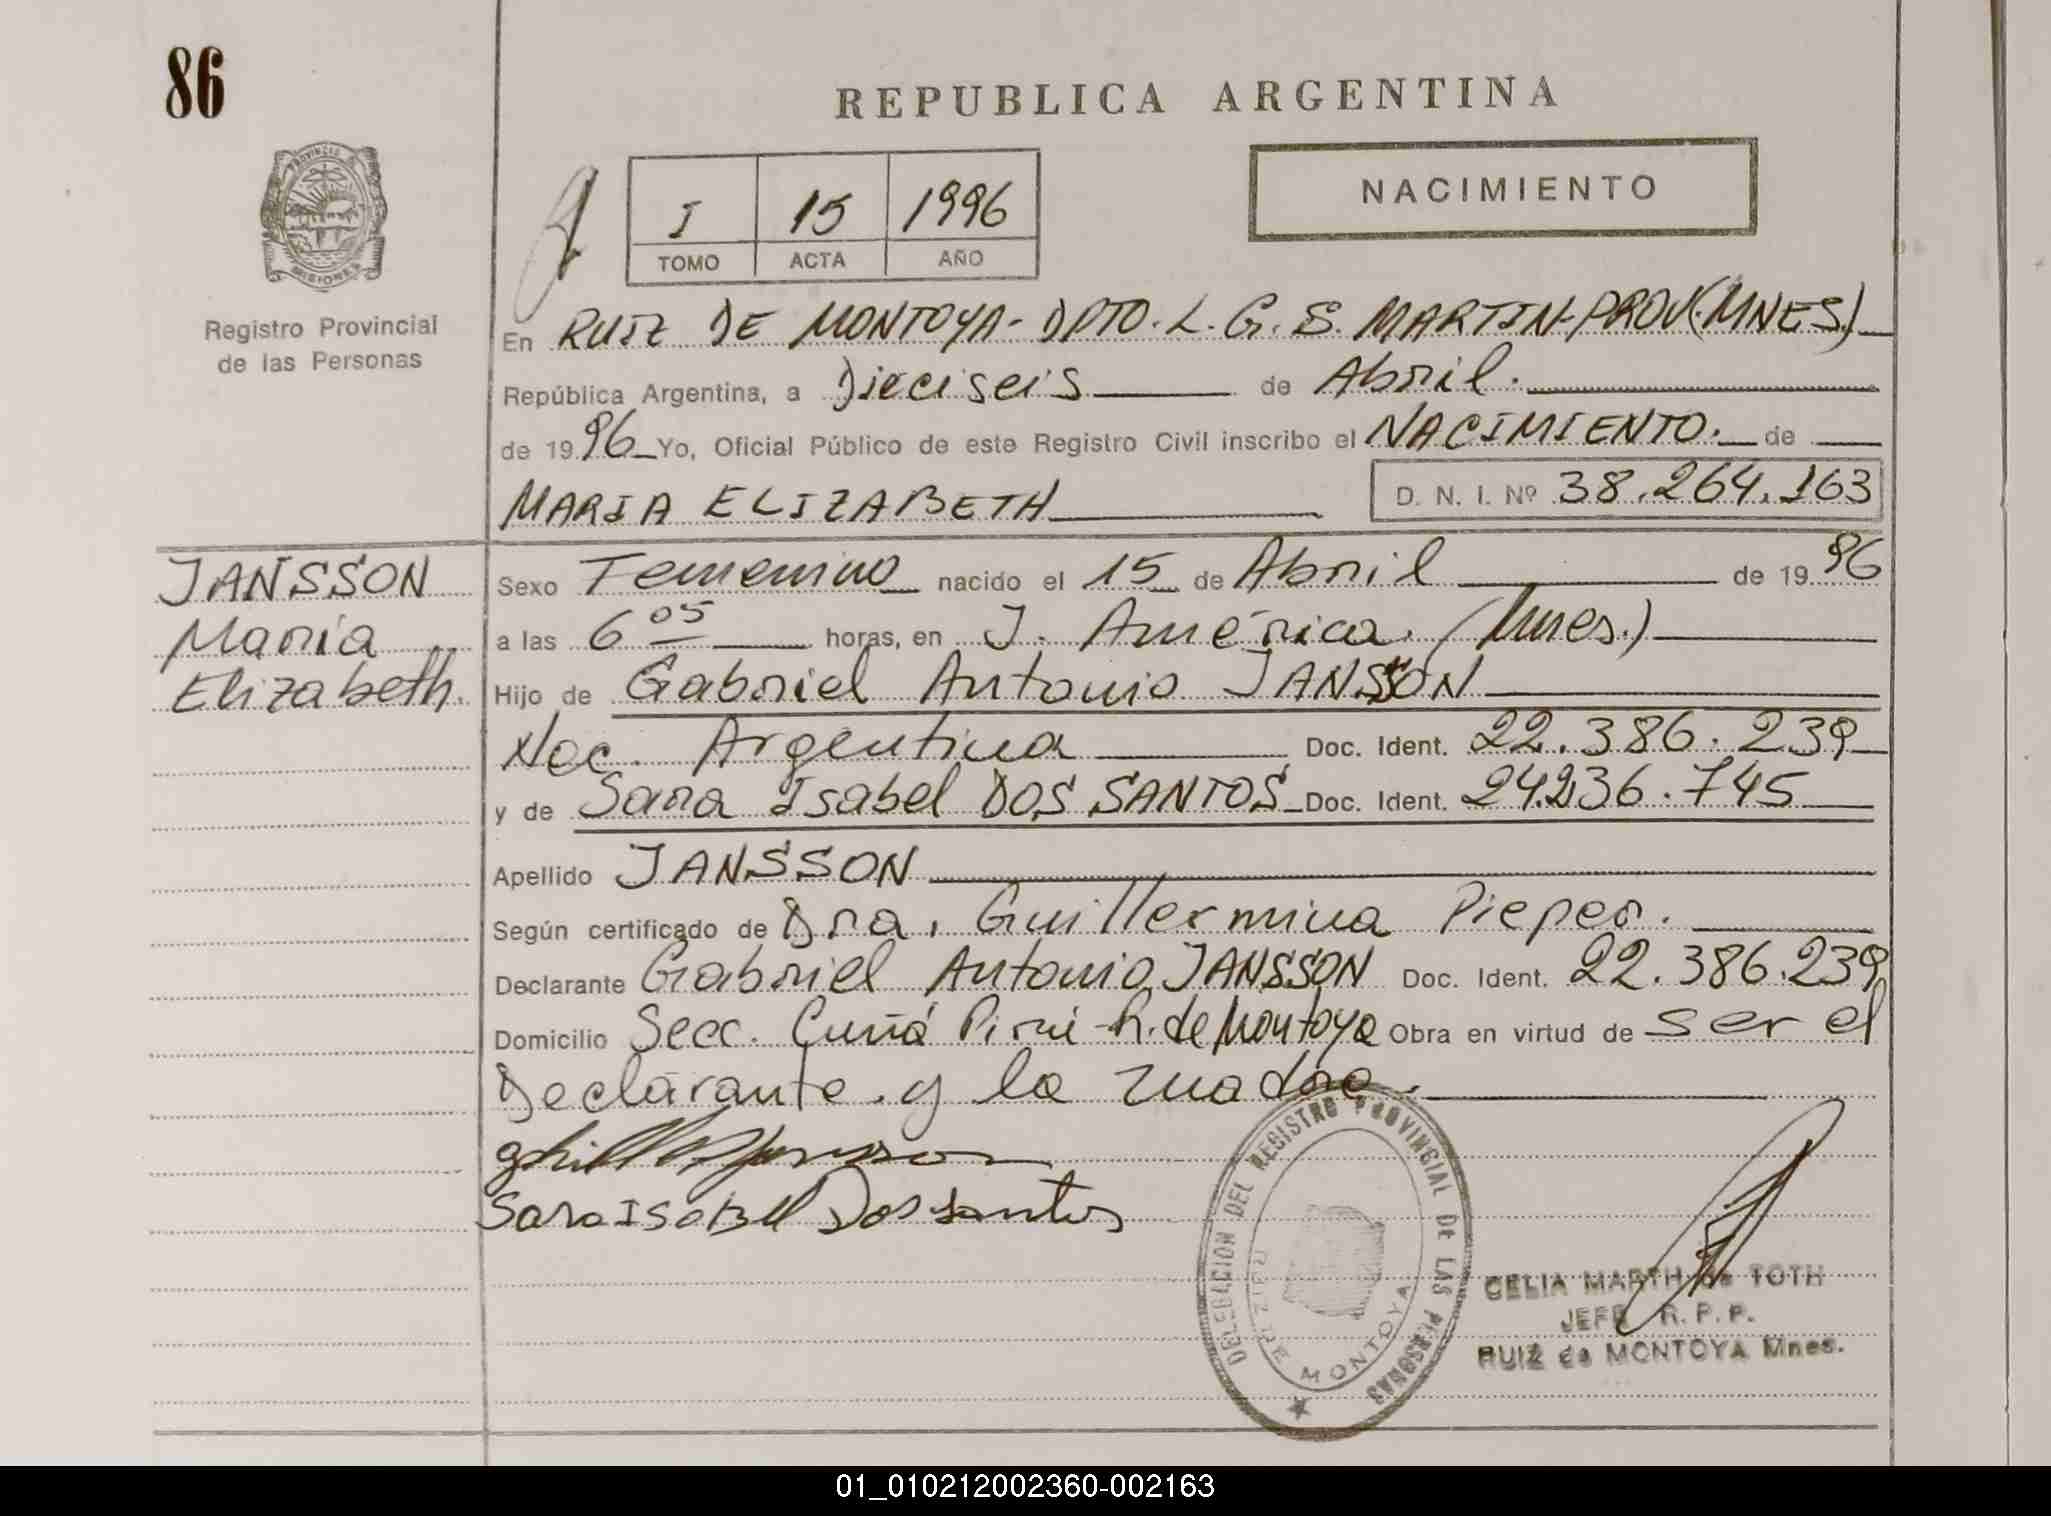 86
REPUBLICA ARGENTINA
PROVINCIA DE
MISIONES
Registro Provincial
de las Personas
I 15 1996
TOMO ACTA AÑO
NACIMIENTO
En RUIZ DE MONTOYA- DPTO. L. G. S. MARTIN-PROV.(MNES.)
República Argentina, a Dieciseis de Abril.
de 1996 Yo, Oficial Público de este Registro Civil inscribo el NACIMIENTO. de
MARIA ELIZABETH D. N. I. Nº 38.264.163
JANSSON
María
Elizabeth.
Sexo Femenino nacido el 15 de Abril de 1996
a las 6 05 horas, en J. América. (Mnes.)
Hijo de Gabriel Antonio JANSSON
Nac. Argentina Doc. Ident. 22.386.239
y de Sara Isabel DOS SANTOS Doc. Ident. 24.236.745
Apellido JANSSON
Según certificado de Dra. Guillermina Pieper.
Declarante Gabriel Antonio JANSSON Doc. Ident. 22.386.239
Domicilio Secc. Cuñá Pirú-R. de Montoya Obra en virtud de ser el
Declarante y la madre.
Sara Isabel Dos santos
DELEGACION DEL REGISTRO PROVINCIAL DE LAS PERSONAS
RUIZ DE MONTOYA
CELIA MARTH de TOTH
JEFE R. P. P.
RUIZ de MONTOYA Mnes.
01_010212002360-002163